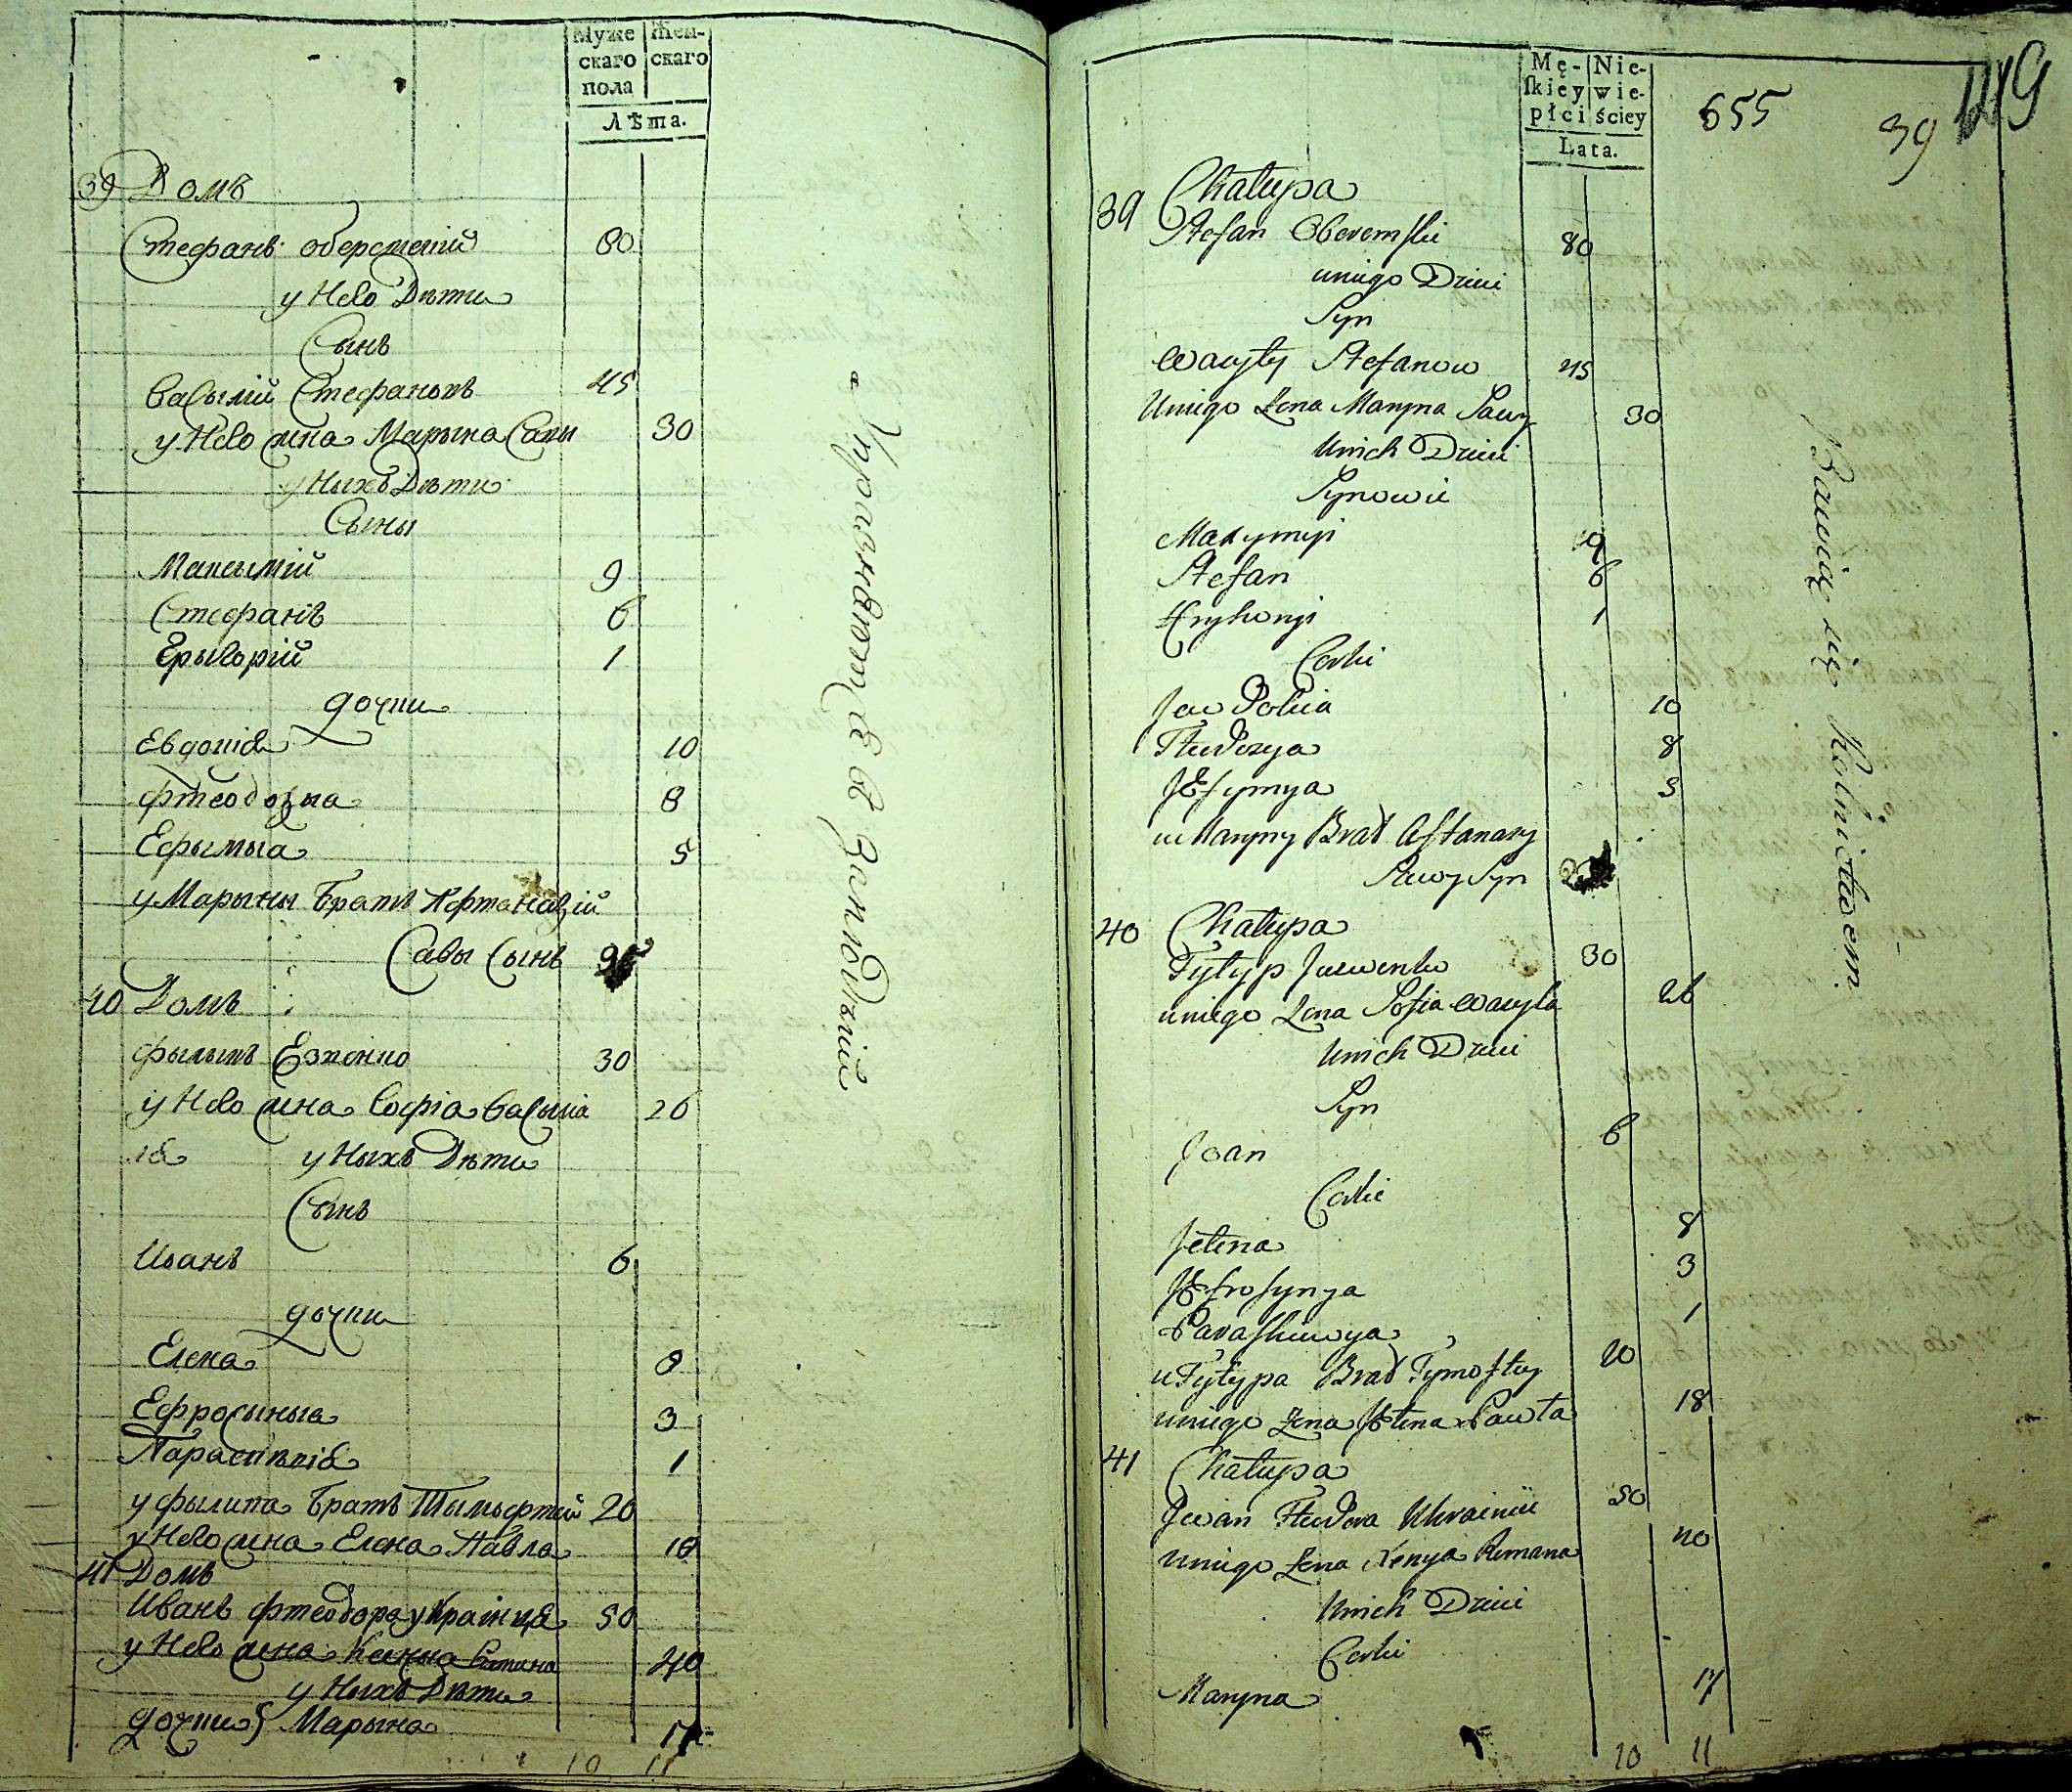 Муже
скаго
пола
Жен-
скаго
Лѣта.
39 Домъ
Стефанъ оберемскій 80
у Него Дѣти
Сынъ
Василій Стефановъ 45
у Него жена Марына Савы 30
у Ныхъ Дѣти
Сыны
Максымій 9
Стефанъ 6
Грыгорій 1
дочки
Евдокія 10
Фтеодозыа 8
Ефымыа 5
у Марыны Братъ Афтаназій
Савы Сынъ
40 Домъ
Фылыпъ 30
у Него жена Софіа Васыліа 26
у Ныхъ Дѣти
Сынъ
Иванъ 6
дочки
Елена 8
Ефросыныа 3
Параскевія 1
у Фылипа Братъ Тымофтей 20
у Него жена Елена Павла 18
41 Домъ
Иванъ Фтеодора украінця 50
у Него жена Ксеныа Романа 40
у Ныхъ Дѣти
дочки} Марына 17
10 11
Упражняются въ
Mę-
skiey
płci
Nie-
wie-
ściey
Lata.
655
39
39 Chałupa
Stefan Oberemski 80
u niego Dzieci
Syn
Wasyly Stefanow 45
U niego Żona Maryna Sawy 30
U nich Dzieci
Synowie
Maxymiji 9
Stefan 6
Hryhoryi 1
Corki
Jew Dokia 10
Fteodozya 8
JEfymya 5
u Maryny Brat Aftanazy
Sawy Syn
40 Chałupa
Fylyp 30
u niego Żona Sofia Wasyla 26
U nich Dzieci
Syn
Joan 6
Corki
Jelena 8
JEfrosynya 3
Paraskewya 1
u Fylypa Brat Tymoftey 20
u niego Żona JElena Pawła 18
41 Chałupa
Jwan Fteodora Ukrainiec 50
U niego Żona Xenya Romana 40
U nich Dzieci
Corki
Maryna 17
10 11
Bawią się Rolnictwem.